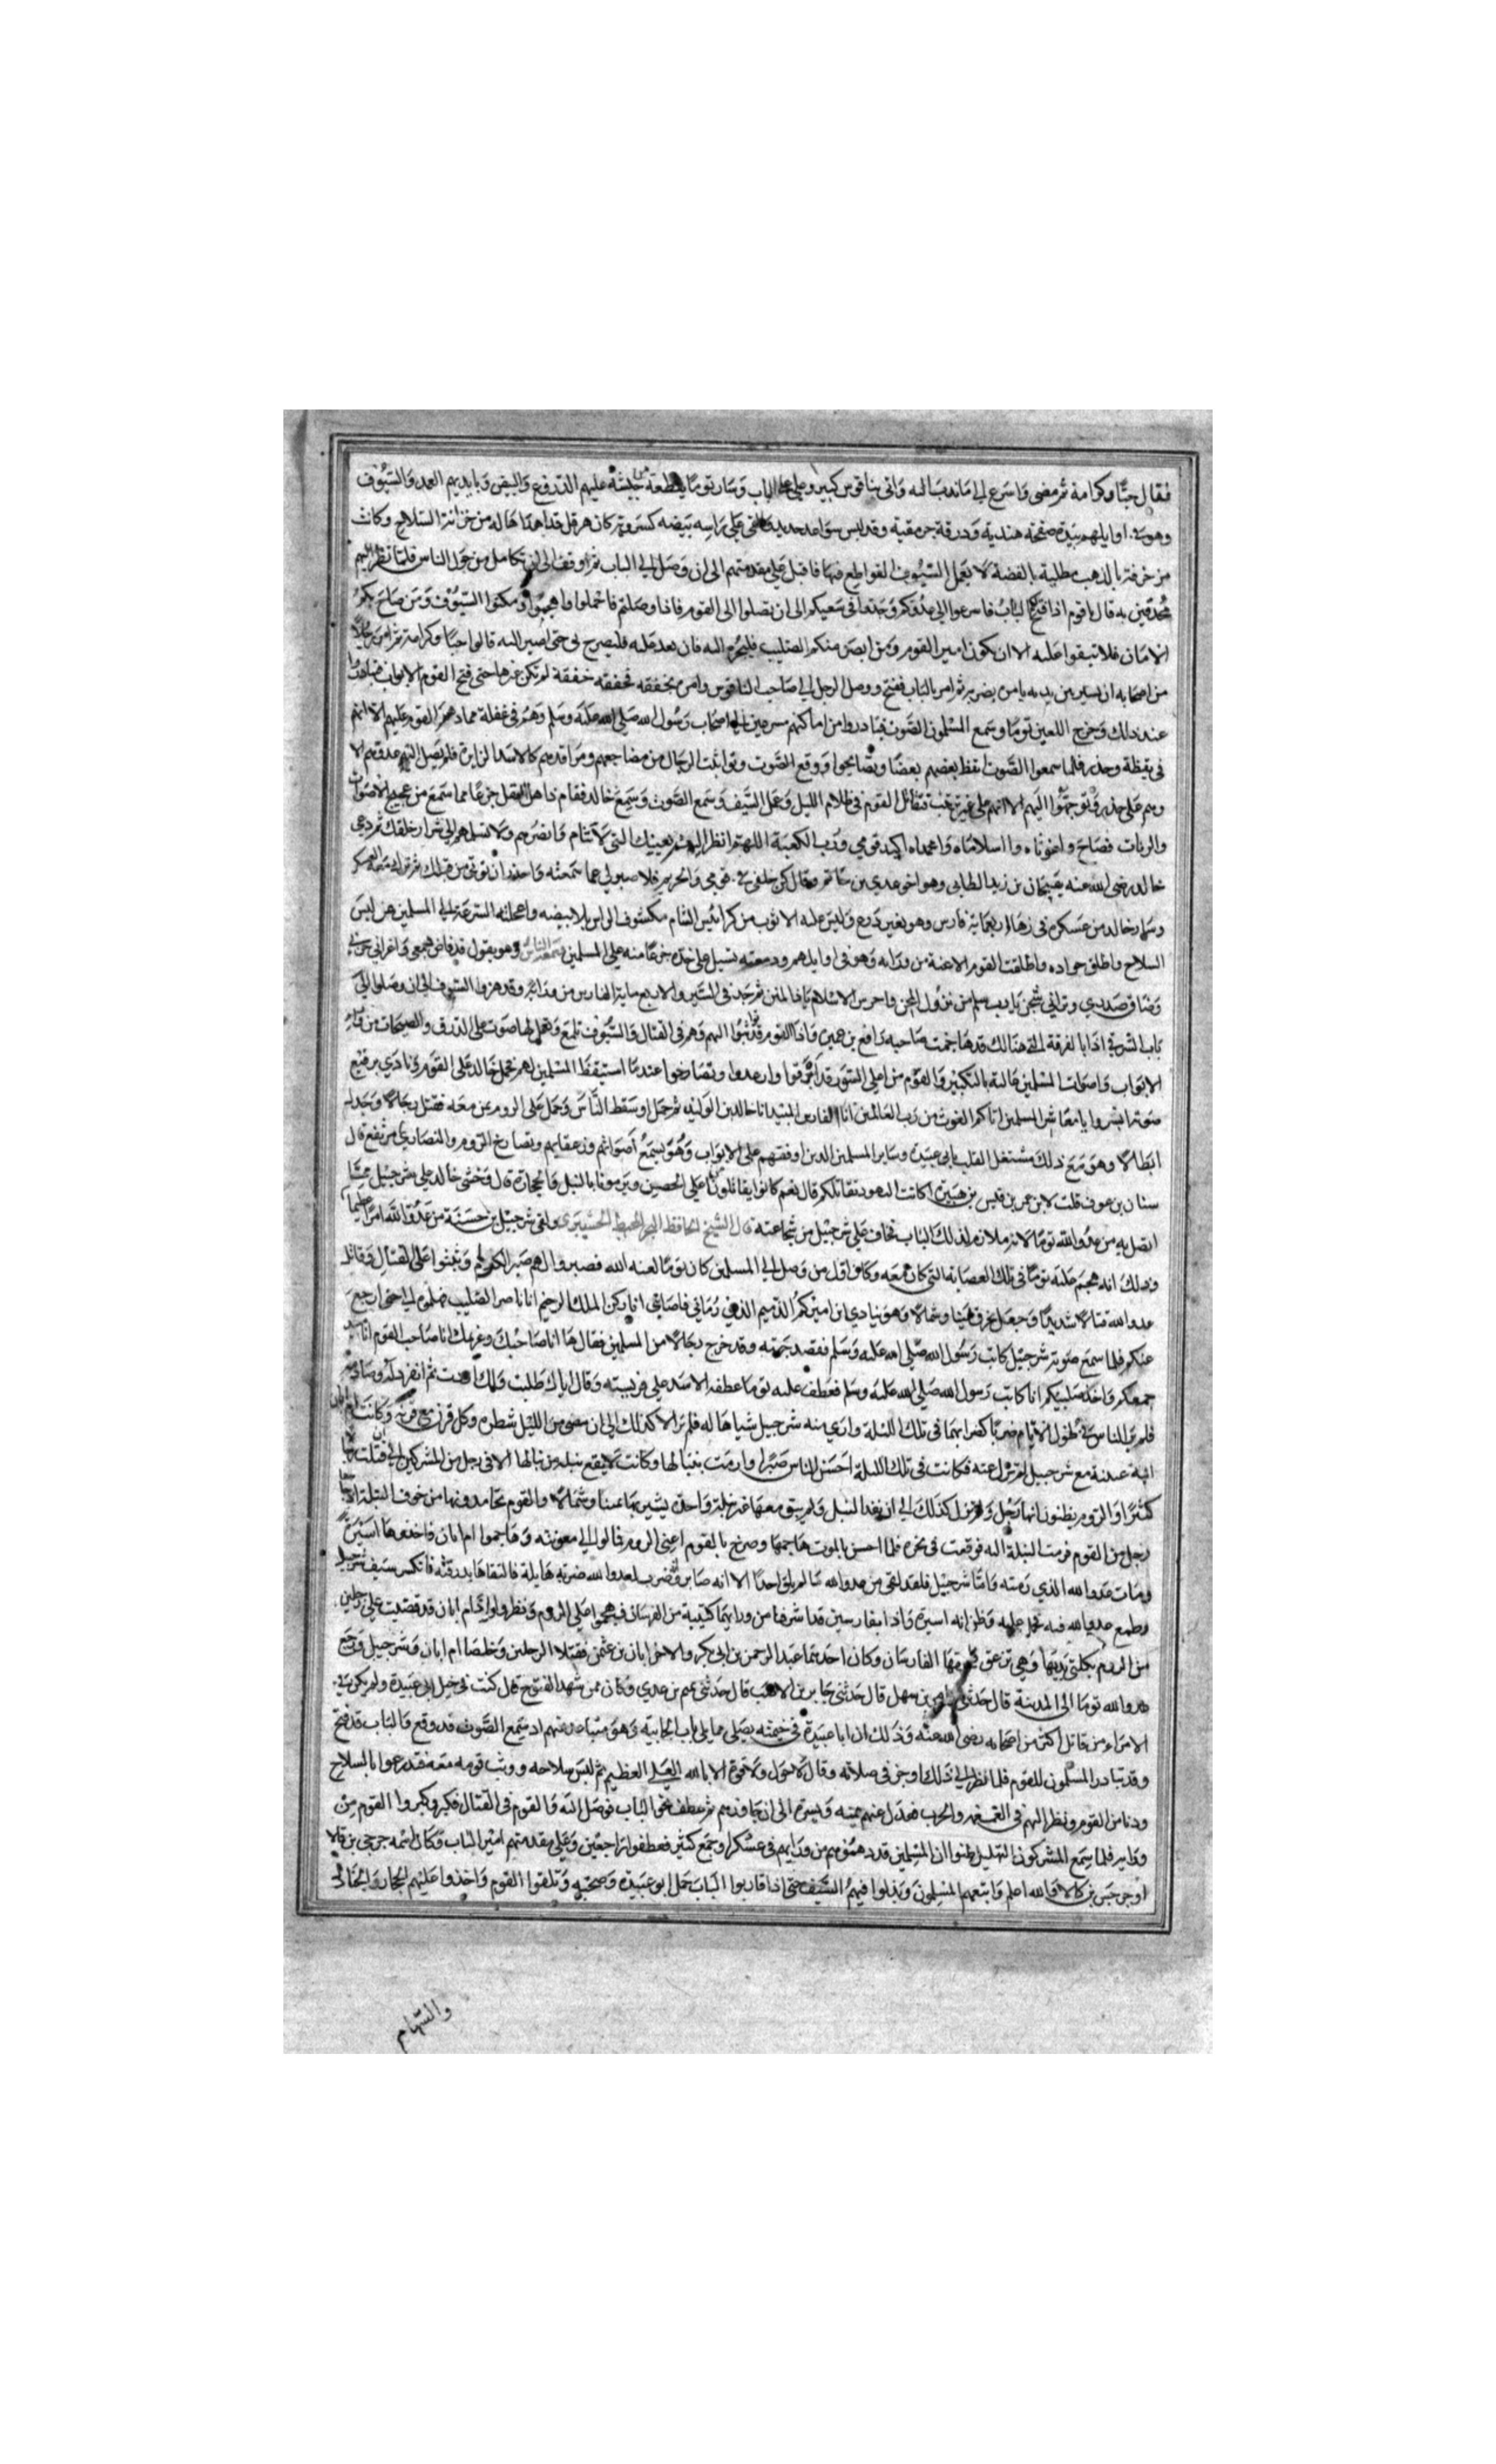 فقال حبًّا وكرامة ثم مضى وَاسرع الى مَا ندب اليه وَاتى بناقوس كبير وعلى على الباب وَسَار توما بقطعة من جيشه عليهم الدروع وَالبيض وَبايديهم العمد وَالسّيُوف
وهو في اوايلهم بيده صفحة هندية وَدرقة جرمقية وقد لبس سواعد حديد والقى على رَاسه بَيضه كسروية كان هرقل قد اهداها له من خزانة السّلاح وكانت
مزخرفة بالذهب مطلية بالفضة لا تعمل السّيُوف القواطع فيها فاقبل على مقدمتهم الى ان وَصَل الى الباب ثم اوقف الى ان تكامل من حَول الناس فلما نظر اليهم
محدقين به قال يا قوم اذا فتح لكم البابُ فاسرعوا الى عدُوكم وَجدوا في سَعيكم الى ان تصلوا الى القوم فاذا وصَلتم فاحملوا واهجموا ومكنوا السّيُوف وَمن صَاح بكم
الامَان فلا تبقوا عليه الا ان يكون امير القوم وَمن ابصَر منكم الصليب فليجره اليه فان بعد عليه فليصرخ لى حتى اصير اليه قالوا حبًا وكرامة ثم امر رجلاً
من اصحابه ان يسير بين يديه يامر من يضربه ثم امر بالباب ففتح ووصل الرجل الى صاحب الناقوس وامره بخفقه فخفقه خفقة لم تكن غيرها حتى فتح القوم الابواب فتبادرُوا
عند ذلك وَخرج اللعين توما وسمع المسْلمون الصَّوت فتبادروا من اماكنهم مسرعين الى اصحاب رَسُول الله صَلى الله عَليه وَسَلم وَهُم في غفلة مما دهمهم القوم عليهم الا انهم
في يقظة وحذر فلما سمعوا الصَّوت ايقظ بعضهم بعضًا وتصَايحوا وَوقع الصَّوت وتواثبت الرجال من مضاجعهم ومَراقدهم كالاسَد الزايرة فلم يصل اليهم عدوهم الا
وهم على حذر وَتوجهوا اليَهم الا انهم على غير ترتيب فتقاتل القوم في ظلام الليل وَعمل السَّيف وَسَمع الصَّوت وَسَمِع خالد فقام ذاهل العقل جزعًا مما سَمع من عجيج الاصوات
والرنات فصَاحَ واغوثاه وا اسلامَاه وَامحمداه اكيد قومي وَرَب الكعبَة اللهم انظر اليهم بعينك التي لا تنام وَانصُرهم وَلا تسلمهم الى شرار خلقك ثم دعى
خالد رضي الله عنه بقيحان بن زيد الطايى وهو اخو عدي بن حاتم وقال كن خلفى في قومي وَالحريم فلا صبر لي عما سَمعته وَاحذر ان توتى من قبلك ثم تولى بهمة العسكر
وسَار خالد من عَسكره فى زهَاء اربعماية فارس وهو بغير دَرع وَليسَ عليه الا ثوب من كرابيس الشام مكشوف الراس بلا بيضه واعجلته السّرعة الى المسلمين عن لبسَ
السلاح واطلق جواده واطلقت القوم الاعنة من وَرَايه وَهو في اوايلهم ودمعته تسيل على خدّه جزعًا منه على المسلمين وهو يقول قد فاض دمعي وَاعراني حزني
وَضَاق صَدري وترانى شجن يَا رب سَلم من نزُول المحن واحرس الاسْلام يَا ذا المنن ثم جَد في السَّير والاربع ماية الفارس من وَرَائه وقد هزوا السّيُوف الى ان وصَلوا الى
بَاب الشرقي اذا بالفرقة التي هنالك قد هَاجمت صَاحبه رَافع بن عميرة وَاذا القوم قد ثبتوا اليهم وَهم في القتال وَالسّيُوف تلمع وَلعملها صَوت على الدرق والصيحات من قبلِ
الابوَاب وَاصوَات المسْلمين عَالية بالتكبير وَالقوْم من اعلى السّور قد اشرفوا وارعدوا وتصَارخوا عندما استيقظ المسْلمين لهم فحمل خالد على القوم ونادى برفيع
صَوته ابشروا يا معاشر المسلمين اتاكم الغوث من رَب العالمين انا الفارس المبيد انا خالد بن الوَليد ثم حمل اوسَط النَّاس وَحمل على الروم بمن معه فقتل رجَالا وَجدل
ابطالا وهو مَع ذلك مشتغل القلب بابى عبَيدة وسَاير المسلمين الذين اوقفهم على الابوَاب وَهُو يَسمعُ أصَواتهم وزعقاتهم وتصَارخ الرّوم والنصَارى مرتفع قال
سنان بن عوف قلت لابن عمى بن قيس بن هبَيرة اكانت اليهود تقاتلكم قال نعم كانوا يقاتلونا على الحصين ويَرمونا بالنبل وَالحجارة قال وَخشى خالد على شرحبيل مما
اتصل به من عدُو الله توما لانه ملازم لذلك الباب فخاف على شرحبيل من شجاعته قال الشيخ الحافظ ولقى شرحبيل بن حسَنة من عَدُو الله امرًا عظيما
وذلك انه هجم عليَه توما في تلك العصَابة التي كان معَه وكان اوّل من وَصل الى المسلمين كان توما لعنه الله فصبروا لهم صَبر الكرام لهم وَتجثوا على القتَال وَقاتل
عدو الله قتالا شديدًا وَجعَل يخرق يمينا وشمالا وَهو ينادى اين اميركم الذميم الذي رَمانى فاصَابنى انا ركن الملك الرحيم انا ناصر الصليب هلموه الى حتى ارجع
عنكم فلما سمعَ صَوته شرحبيل كاتب رَسُول الله صَلى الله عَليه وَسَلم فقصد جهته وقد خرج رجَالا من المسلمين فقال هَا انا صَاحبُكَ وغريمك انا صَاحب القوم انا مبيد
جمعكم وَاخذ صَليبكم انا كاتب رَسول الله صَلى الله عَليَه وسَلم فعَطف عليه توما عطفه الاسَد على فريسته وَقال اياك طلبت وَلك اردت ثم انفرد له وسَاواه
فلم يَر الناس فى طُول الايام ضربًا كضرابهمَا في تلك الليلة وارى منه شرحبيل شيا هَاله فلم يَزالا كذلك الى ان مضى من الليل شطره وكل قرن مع قرنه وكانت ام ابان
ابنة عتبة مع شرحبيل لم تبرح عنه فكانت في تلك الليلة احسَن الناس صَبرًا وارمَت بنبَالها وكانت لا يقع نبلة من نبالها الا في رجل من المشركين الى ان قتلت رجالا
كثيرًا وَالروم يظنون انها رَجل وَلم تزل كذلك الى ان نفد النبل وَلم يبق معهَا غير نبلة وَاحدة يشير بهَا يمينا وشمالا والقوم تحَامدونها من خوف النبلة اذ جا
رجل من القوم فرمت النبلة اليه فوقعت في نحره فلما احسن بالموت هَاجمهَا وصرخ بالقوم اعِنى الروم فمالوا الى معونته وَهَاجموا ام ابان فاخذوهَا اسَيرة
وَمات عدو الله الذي رَمته وَامَّا شرحبيل فلقد لقى من عدو الله مَا لم يلق احدًا الا انه صَابر وَضرب لعدو الله ضربة هَايلة فالتقاها بدرقته فانكسر سَيف شرحبيل
وطمع عدو الله فيه فحمل عليه وَظن انه اسيره وَاذا بفارسين قد اشرفا من ورَايهما كتيبة من الفرسَان فهجموا على الروم وَنظروا ام ابان قد قضيت على رجلين
من الروم بكلتي يَديهَا وَهي تزعق فخرقها الفارسَان وَكان احدهمَا عبَد الرحمن بن ابى بكر والاخر ابان بن عثمن فقتلا الرجلين وَخلصَا ام ابان وَشرحبيل وَرَجع
عدو الله توما الى المدينة قال حَدثنى بن سَهل قال حَدثنى جَابر بن قال حَدثنى عمير بن عدي وَكان ممن شهد الفتوح قال كنت في خيل ابى عبَيدة ولم يكن في
الامرَاء من قاتل اكثر من اصحابه رضى الله عنه وَذلك ان ابا عبَيدة في خيمته يصَلى مما يلى باب الجابية وَهو متباعد عنهم اذ سَمع الصَّوت قد وقع وَالبَاب قد فتح
وقد تبادر المسلمون للقوم فلما نظر الى ذلك اوجز في صلاته وَقال لا حَول وَلا قوة الا بالله العَلى العظيم ثم لبسَ سلاحه ووثب قومه معه قد تدرعوا بالسلاح
ودنا من القوم ونظر اليهم في والحرب فعدَل عنهم يمينه وَيسرة الى ان جَاوزهم ثم عطف نحو الباب فوصَل اليَه وَالقوم في القتال فكبر وكبروا القوم من
ورَايه فلما سَمِع المشركون التهليل ظنوا ان المسْلمين قد دهمُوهم من ورَايهم في عسْكر وجمع كثير فعطفوا رَاجعين وَعلى مقدمتهم امير البَاب وَكان اسْمه جرجي بن قالا
او جرجس بن كالا فالله اعلم وَاتبعهم المسلمونَ وَبذلوا فيهمُ السّيف حتى اذا قاربوا البَابَ حمَل ابو عبَيدة وَصحبه وَتلقوا القوم وَاخذوا عليهم الحجارة وَالحَقالى
والسّهام